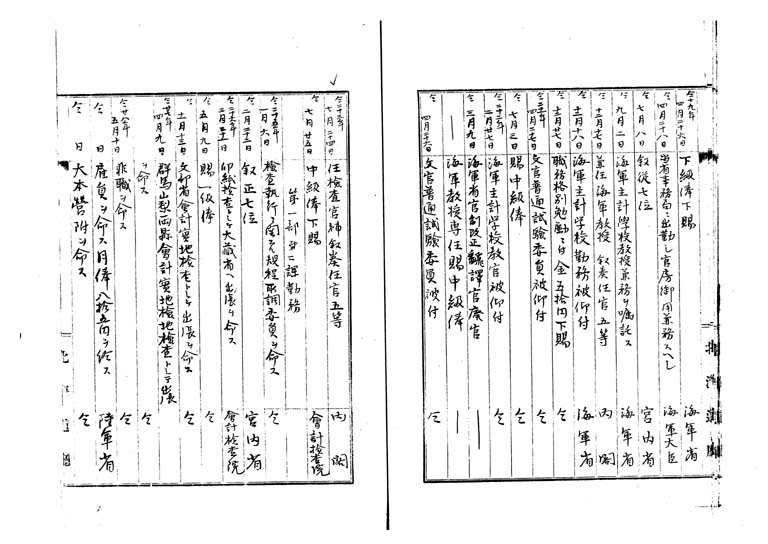 仝十九年四月二十六日 下級俸下賜 海軍省
仝 四月二十一日 当省事務局ニ出勤シ官房御用兼務スヘシ 海軍大臣
仝 七月八日 叙従七位 宮内省
仝 九月二日 海軍主計学校教授兼務ヲ嘱託ス 海軍省
仝 十二月七日 兼任海軍教授 叙奏任官五等 内閣
仝 十二月十八日 海軍主計学校勤務被仰付 海軍省
仝 十二月廿七日 職務格別勉励ニ付金五拾円下賜 仝
仝二十年四月二七日 文官普通試験委員被仰付 仝
仝 七月三日 賜中級俸 仝
仝二十二年二月廿七日 海軍主計学校教官被仰付 仝
仝 三月九日 海軍省官制改正翻譯官廃官 ー
ー 海軍教授専任賜中級俸 ー
仝 四月二六日 文官普通試験委員被付 仝
仝二十三年七月二四日 任検査官補叙奏任官五等 内閣
仝 七月廿五日 中級俸下賜 会計検査院
第一部第二課勤務
仝二十五年一月六日 検査執行ニ関スル規程取調委員ヲ命ス 仝
仝 二月二十三日 叙正七位 宮内省
仝二十六年二月三日 印紙検査トシテ大蔵省ヘ出張ヲ命ス 会計検査院
仝 五月九日 賜一級俸 仝
仝 十二月十三日 文部省会計実地検査トシテ出張ヲ命ス 仝
仝廿七年四月九日 群馬山梨両縣會計実地検査トシテ出張ヲ命ス 仝
仝廿八年五月十日 非職ヲ命ス 仝
仝 日 雇員ヲ命ス月俸八拾五円ヲ給ス 陸軍省
仝 日 大本營附ヲ命ス 仝